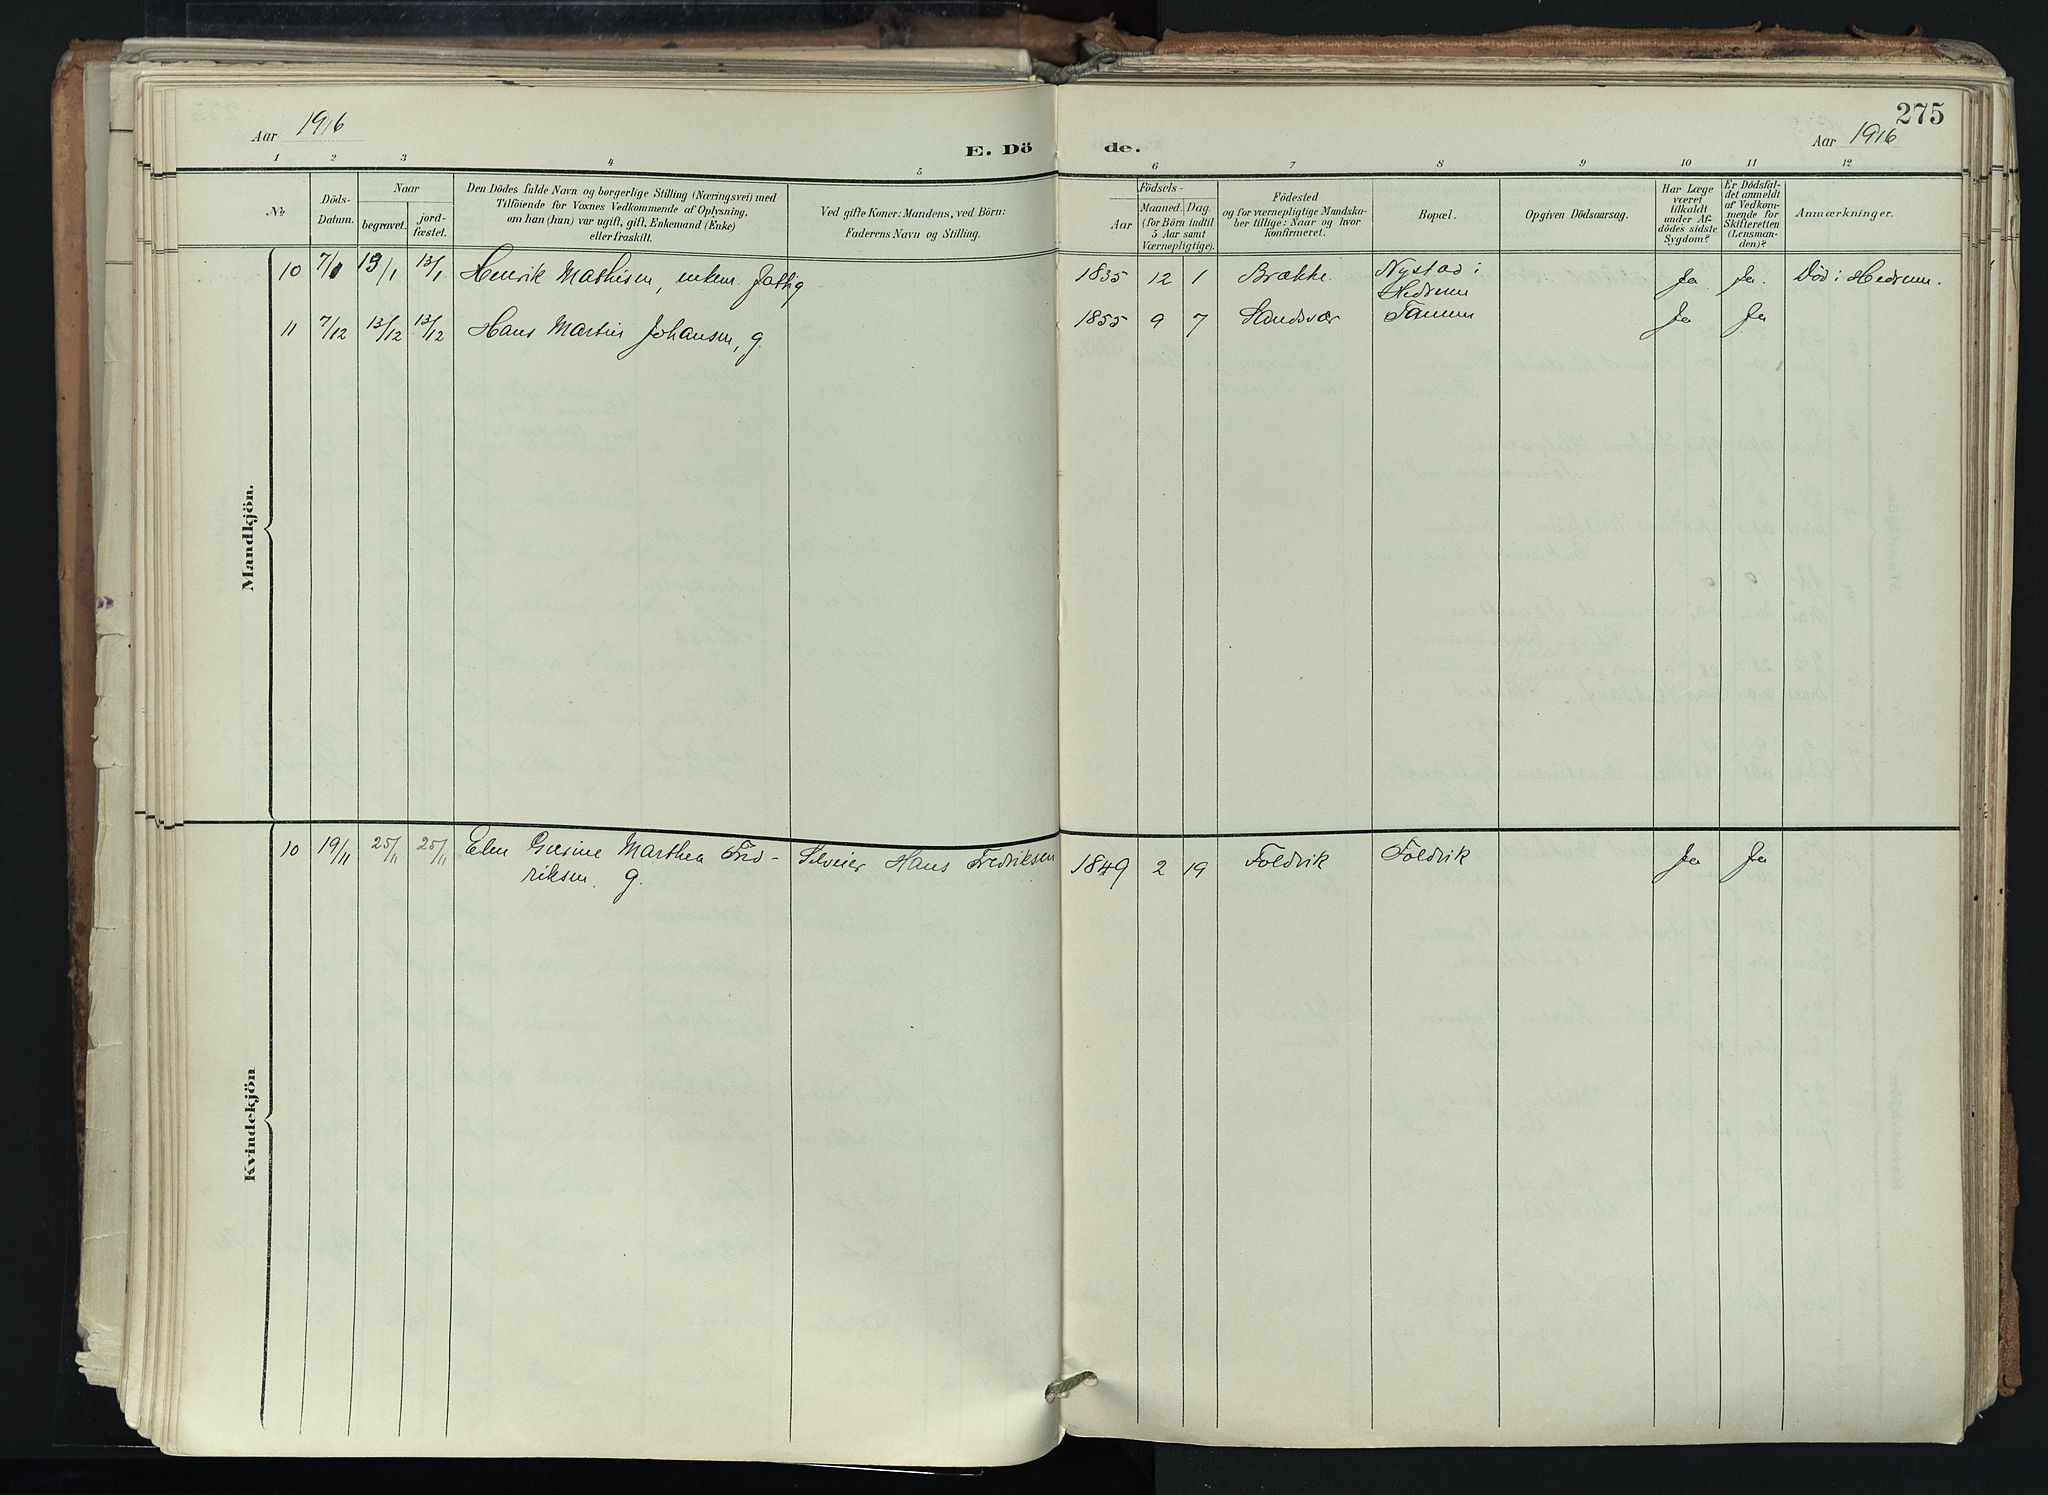 Aar 1916
E. Dö
de.
275
Aar 1916
1 2 3 4 5 6 7 8 9 10 11 12
No
Döds-
Datum.
Naar
begravet.
jord-
fæstet.
Den Dödes fulde Navn og borgerlige Stilling (Næringsvei) med
Tilföiende for Voxnes Vedkommende af Oplysning,
om han (hun) var ugift, gift, Enkemand (Enke)
eller fraskilt.
Ved gifte Koner: Mandens, ved Börn:
Faderens Navn og Stilling.
Födsels-
Aar
Maaned. Dag.
(for Börn indtil
5 Aar samt
Værnepligtige).
Födested
og for værnepligtige Mandska-
ber tillige: Naar og hvor
konfirmeret.
Bopæl.
Opgiven Dödsaarsag.
Har Læge
været
tilkaldt
under Af-
dödes sidste
Sygdom?
Er Dödsfal-
det anmeldt
af Vedkom-
mende for
Skifteretten
(Lensman-
den)?
Anmærkninger.
Mandkjön.
10 7/1 13/1 13/1 Henrik Mathisen, enkem. fattig 1835 12 1 Brække Nystad i Ja Ja. Död i Hedrum.
Hedrum
11 7/12 13/12 13/12 Hans Martin Johansen, g. 1855 9 7 Sandsvær Tanum Ja Ja
Kvindekjön
10 19/11 25/11 25/11 Elen Marthea Fred- Selveier Hans Fredriksen 1849 2 19 Foldvik Foldvik Ja Ja
riksen. g.